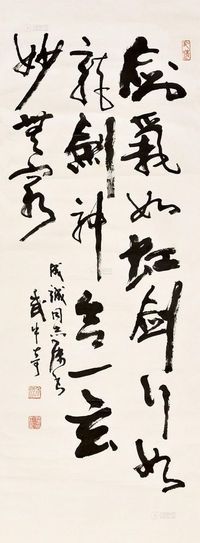 劍氣如虹劍行如
龍劍神合一玄
妙無窮
成誠同志屬書
武中奇